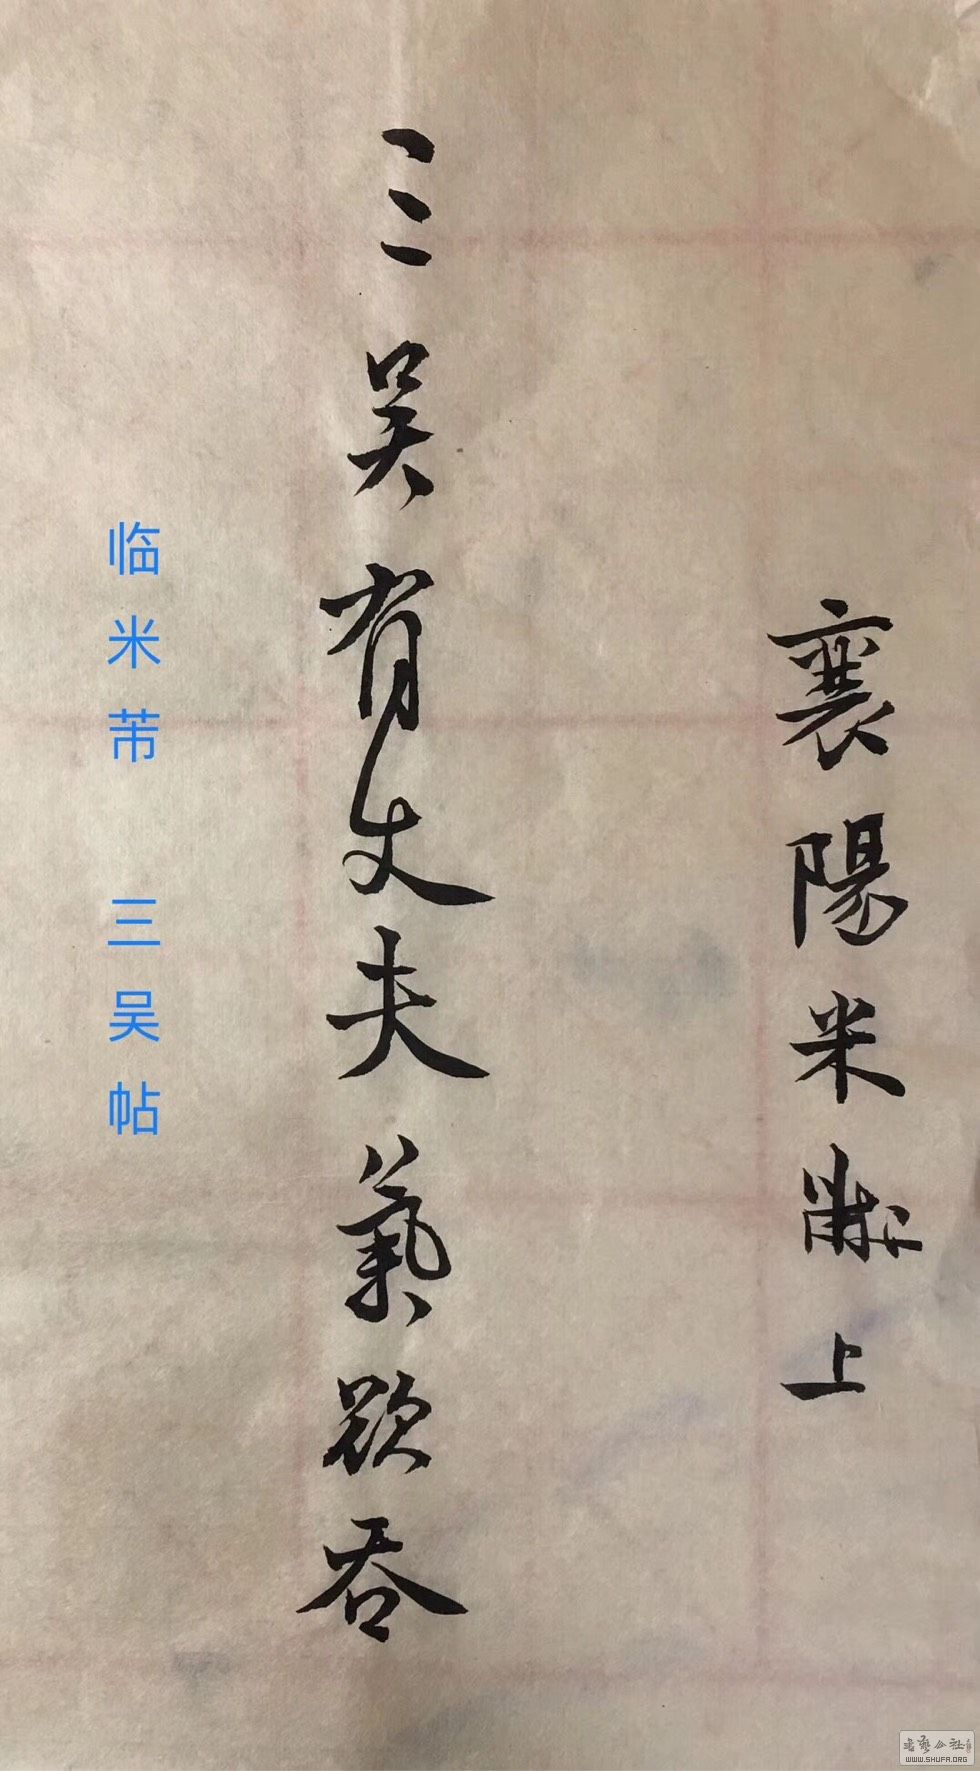 襄陽米黻上
三吴有丈夫氣欲吞
临米芾 三吴帖
書藝公社
WWW.SHUFA.ORG